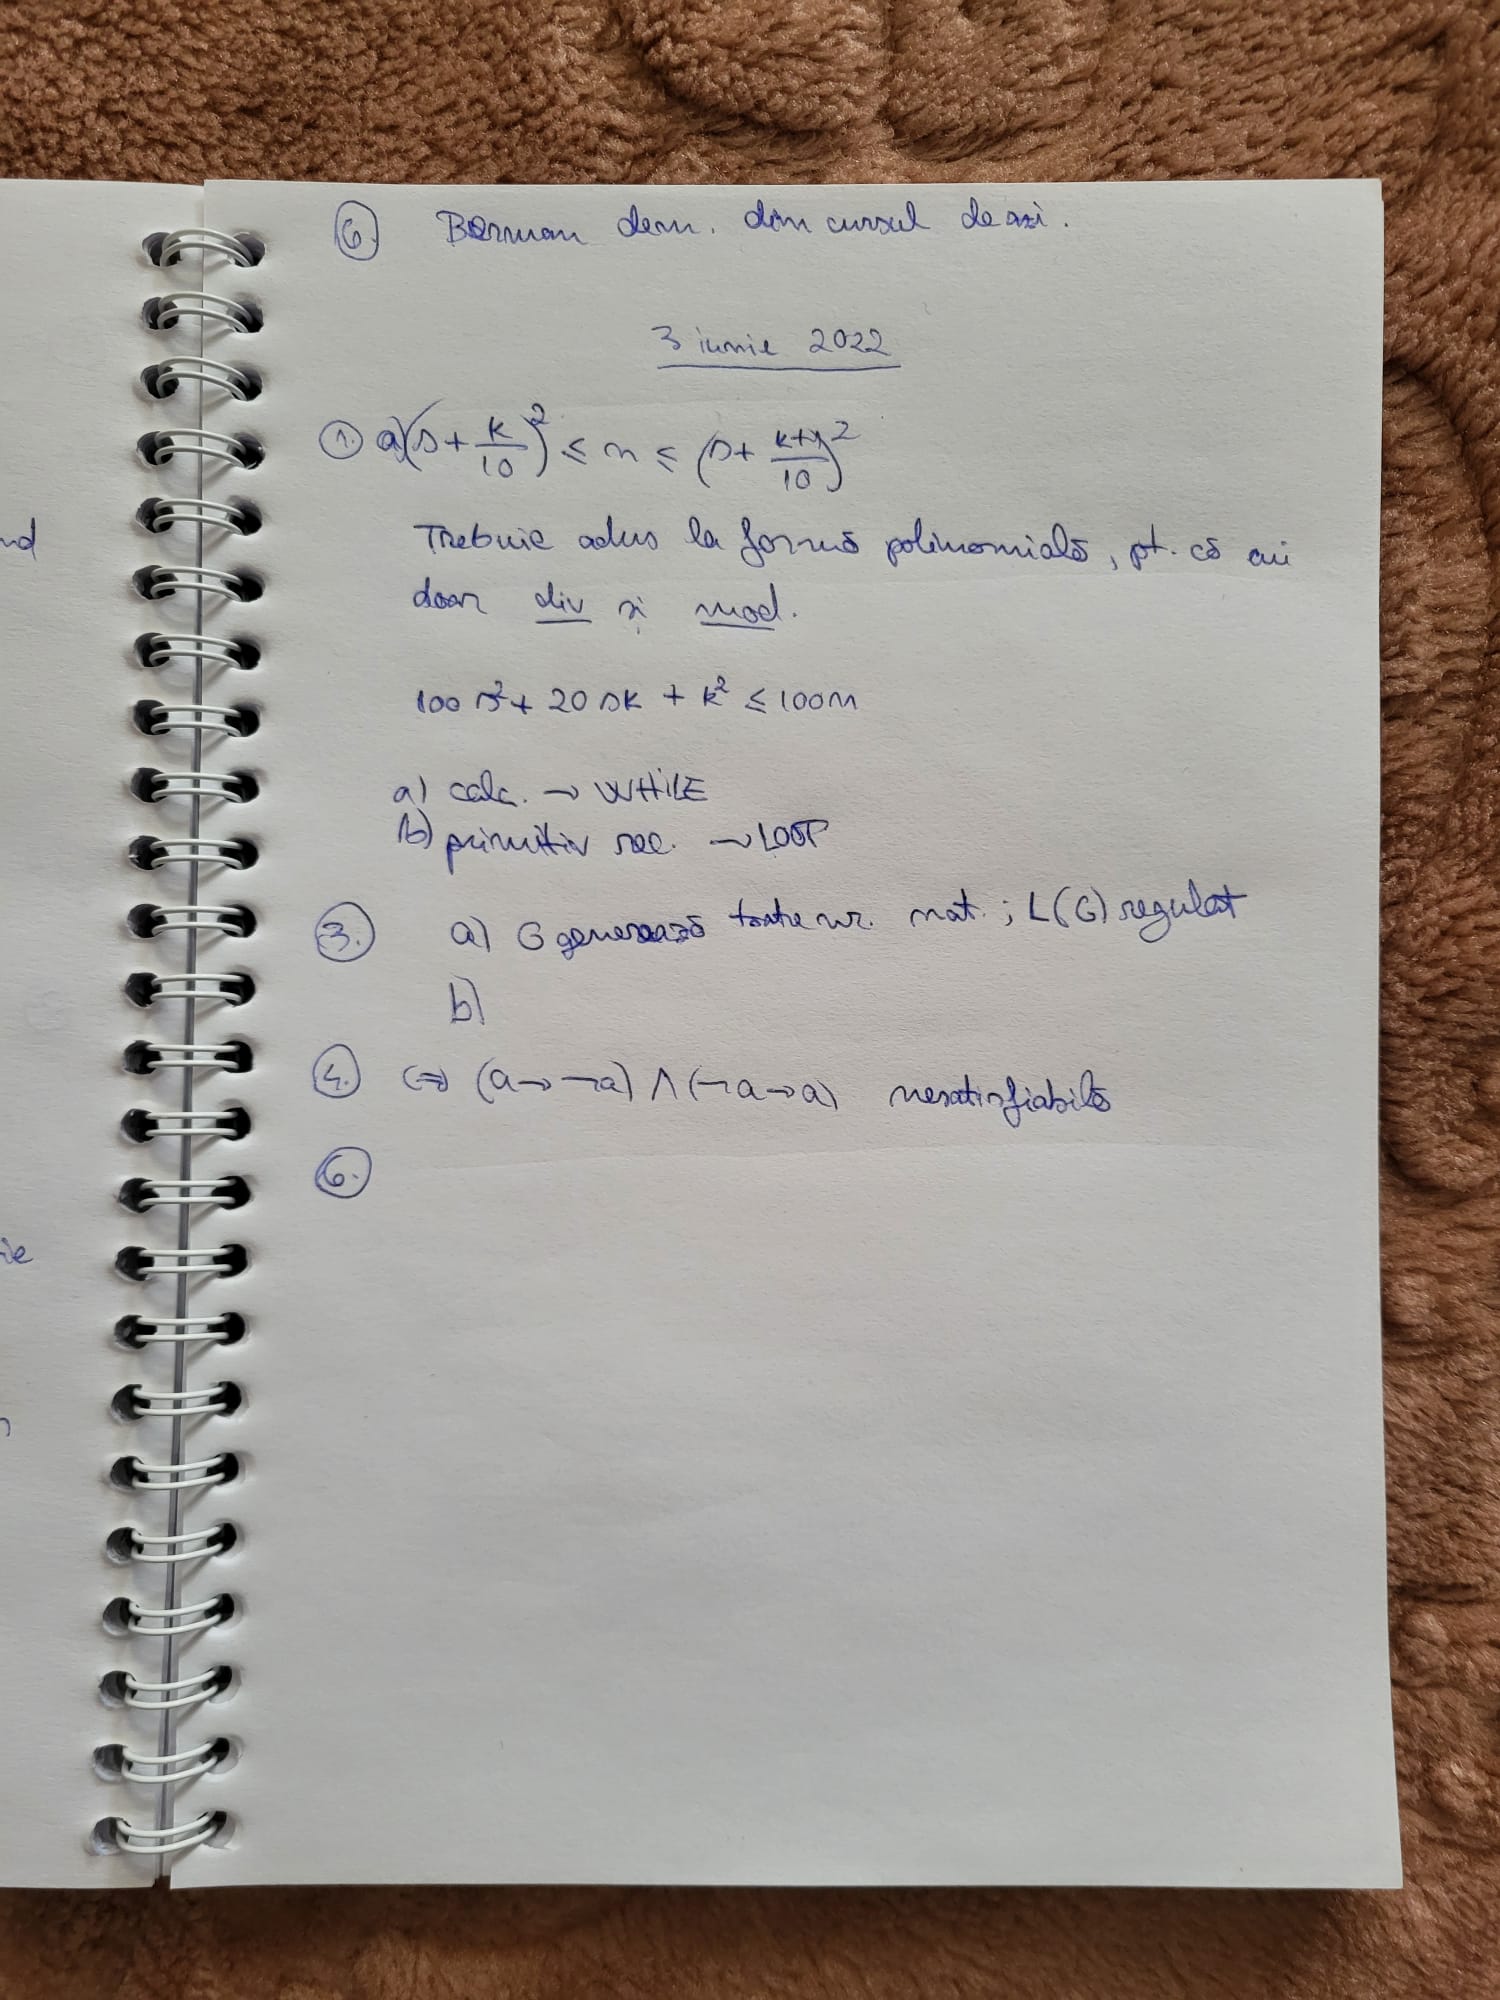 6. Berman dem. din cursul de azi.
3 iunie 2022
1. a) (s + k/10)² ≤ n ≤ (s + k+1/10)²
Trebuie adus la formă polinomială, pt. că ai
nd
doar div și mod.
100s² + 20sk + k² ≤ 100n
a) calc. → WHILE
b) primitiv rec. → LOOP
3. a) G generează toate nr. nat. ; L(G) regulat
b)
4. ⇔ (a → ¬a) ∧ (¬a → a) nesatisfiabilă
6.
ie